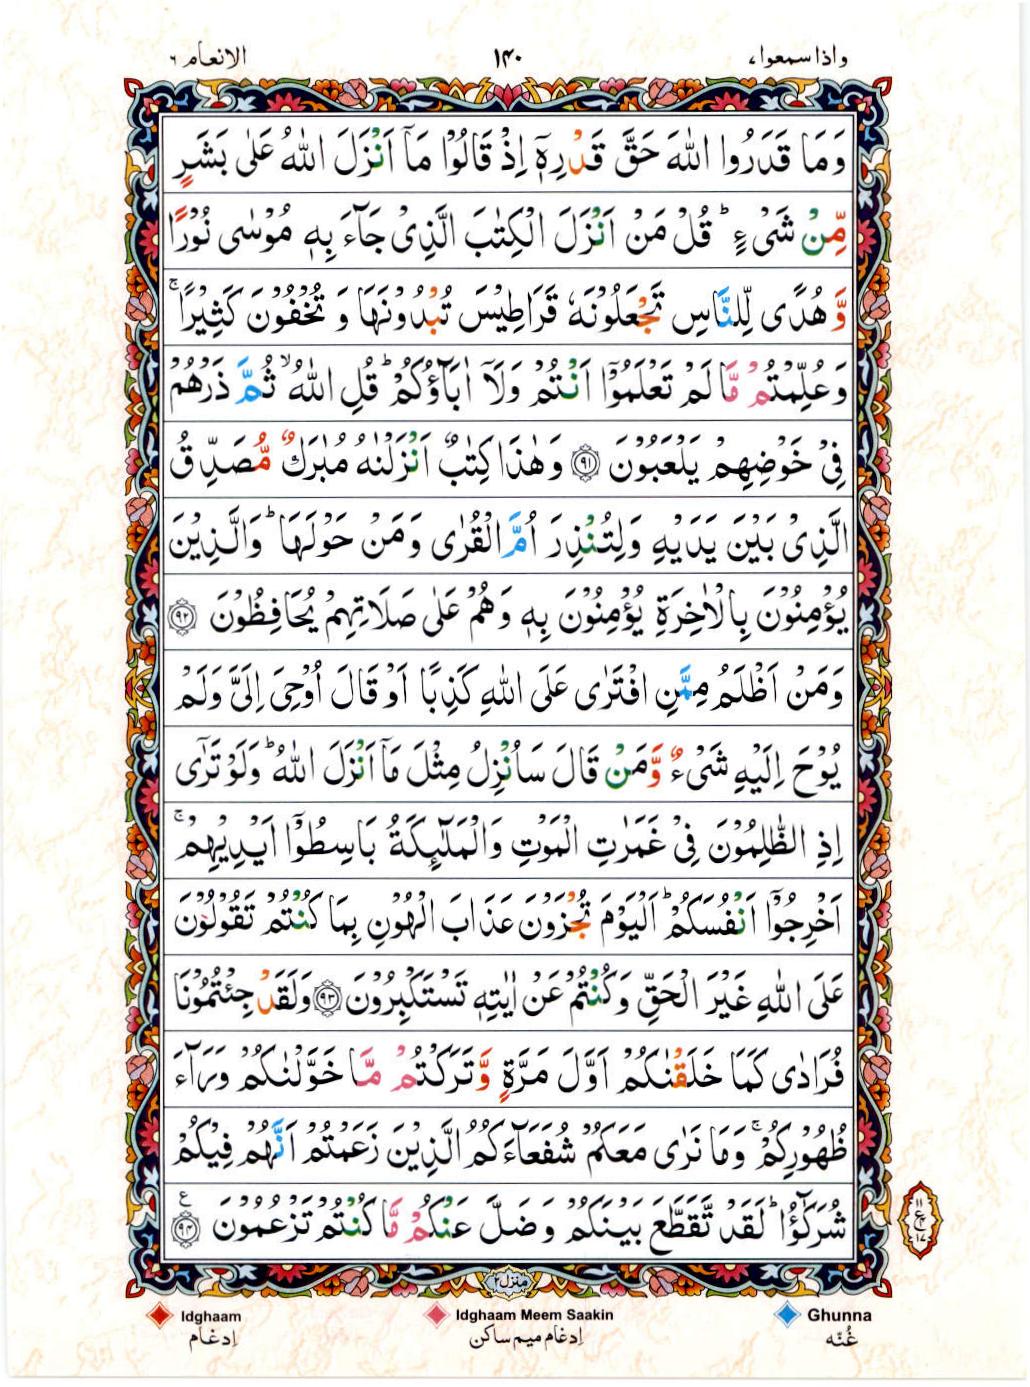 واذا سمعوا، ۱۴۰ الانعام ۶
وَمَا قَدَرُوا اللّٰهَ حَقَّ قَدْرِهٖۤ اِذْ قَالُوْا مَاۤ اَنْزَلَ اللّٰهُ عَلٰى بَشَرٍ
مِّنْ شَىْءٍ ؕ قُلْ مَنْ اَنْزَلَ الْكِتٰبَ الَّذِىْ جَآءَ بِهٖ مُوْسٰى نُوْرًا
وَّ هُدًى لِّلنَّاسِ تَجْعَلُوْنَهٗ قَرَاطِيْسَ تُبْدُوْنَهَا وَ تُخْفُوْنَ كَثِيْرًا ۚ
وَعُلِّمْتُمْ مَّا لَمْ تَعْلَمُوْۤا اَنْتُمْ وَلَاۤ اٰبَآؤُكُمْ ؕ قُلِ اللّٰهُ ۙ ثُمَّ ذَرْهُمْ
فِىْ خَوْضِهِمْ يَلْعَبُوْنَ ﴿۹۱﴾ وَهٰذَا كِتٰبٌ اَنْزَلْنٰهُ مُبٰرَكٌ مُّصَدِّقُ
الَّذِىْ بَيْنَ يَدَيْهِ وَلِتُنْذِرَ اُمَّ الْقُرٰى وَمَنْ حَوْلَهَا ؕ وَالَّذِيْنَ
يُؤْمِنُوْنَ بِالْاٰخِرَةِ يُؤْمِنُوْنَ بِهٖ وَهُمْ عَلٰى صَلَاتِهِمْ يُحَافِظُوْنَ ﴿۹۲﴾
وَمَنْ اَظْلَمُ مِمَّنِ افْتَرٰى عَلَى اللّٰهِ كَذِبًا اَوْ قَالَ اُوْحِىَ اِلَىَّ وَلَمْ
يُوْحَ اِلَيْهِ شَىْءٌ وَّمَنْ قَالَ سَاُنْزِلُ مِثْلَ مَاۤ اَنْزَلَ اللّٰهُ ؕ وَلَوْ تَرٰٓى
اِذِ الظّٰلِمُوْنَ فِىْ غَمَرٰتِ الْمَوْتِ وَالْمَلٰٓئِكَةُ بَاسِطُوْۤا اَيْدِيْهِمْ ۚ
اَخْرِجُوْۤا اَنْفُسَكُمْ ؕ اَلْيَوْمَ تُجْزَوْنَ عَذَابَ الْهُوْنِ بِمَا كُنْتُمْ تَقُوْلُوْنَ
عَلَى اللّٰهِ غَيْرَ الْحَقِّ وَكُنْتُمْ عَنْ اٰيٰتِهٖ تَسْتَكْبِرُوْنَ ﴿۹۳﴾ وَلَقَدْ جِئْتُمُوْنَا
فُرَادٰى كَمَا خَلَقْنٰكُمْ اَوَّلَ مَرَّةٍ وَّتَرَكْتُمْ مَّا خَوَّلْنٰكُمْ وَرَآءَ
ظُهُوْرِكُمْ ۚ وَمَا نَرٰى مَعَكُمْ شُفَعَآءَكُمُ الَّذِيْنَ زَعَمْتُمْ اَنَّهُمْ فِيْكُمْ
شُرَكٰٓؤُا ؕ لَقَدْ تَّقَطَّعَ بَيْنَكُمْ وَضَلَّ عَنْكُمْ مَّا كُنْتُمْ تَزْعُمُوْنَ ﴿۹۴﴾ ع
۱۱ ع ۴ ۱۷
منزل ۲
Idghaam Idghaam Meem Saakin Ghunna
اِدغام اِدغام میم ساکن غُنّہ